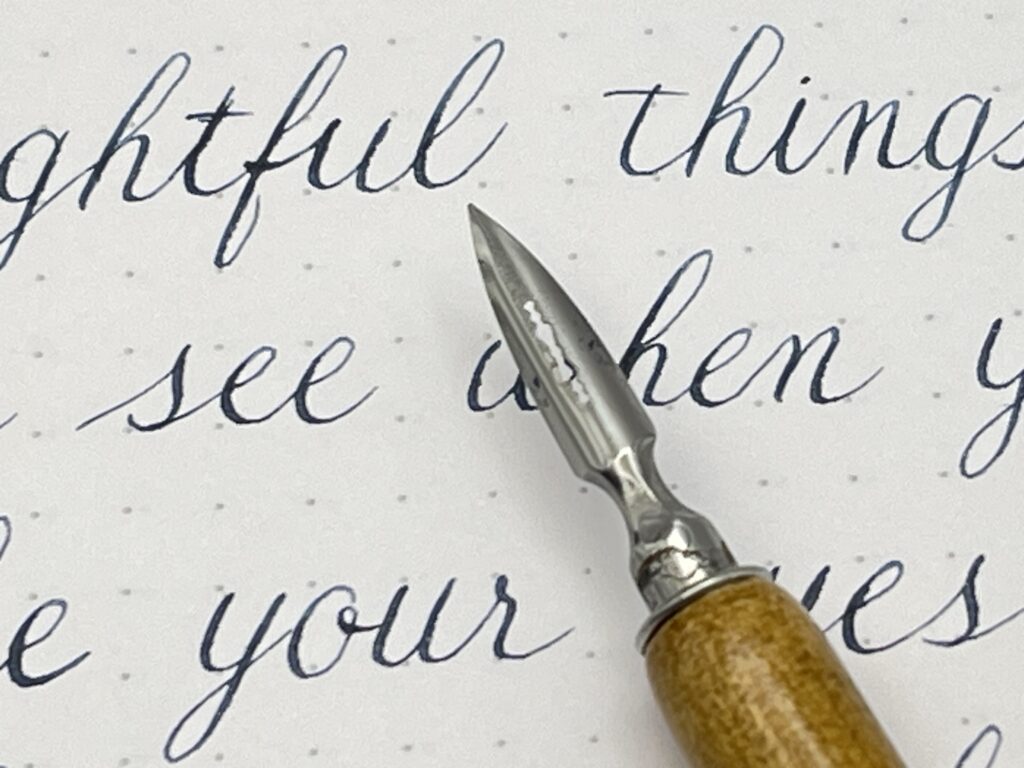 ghtful things
see when y
e your eyes